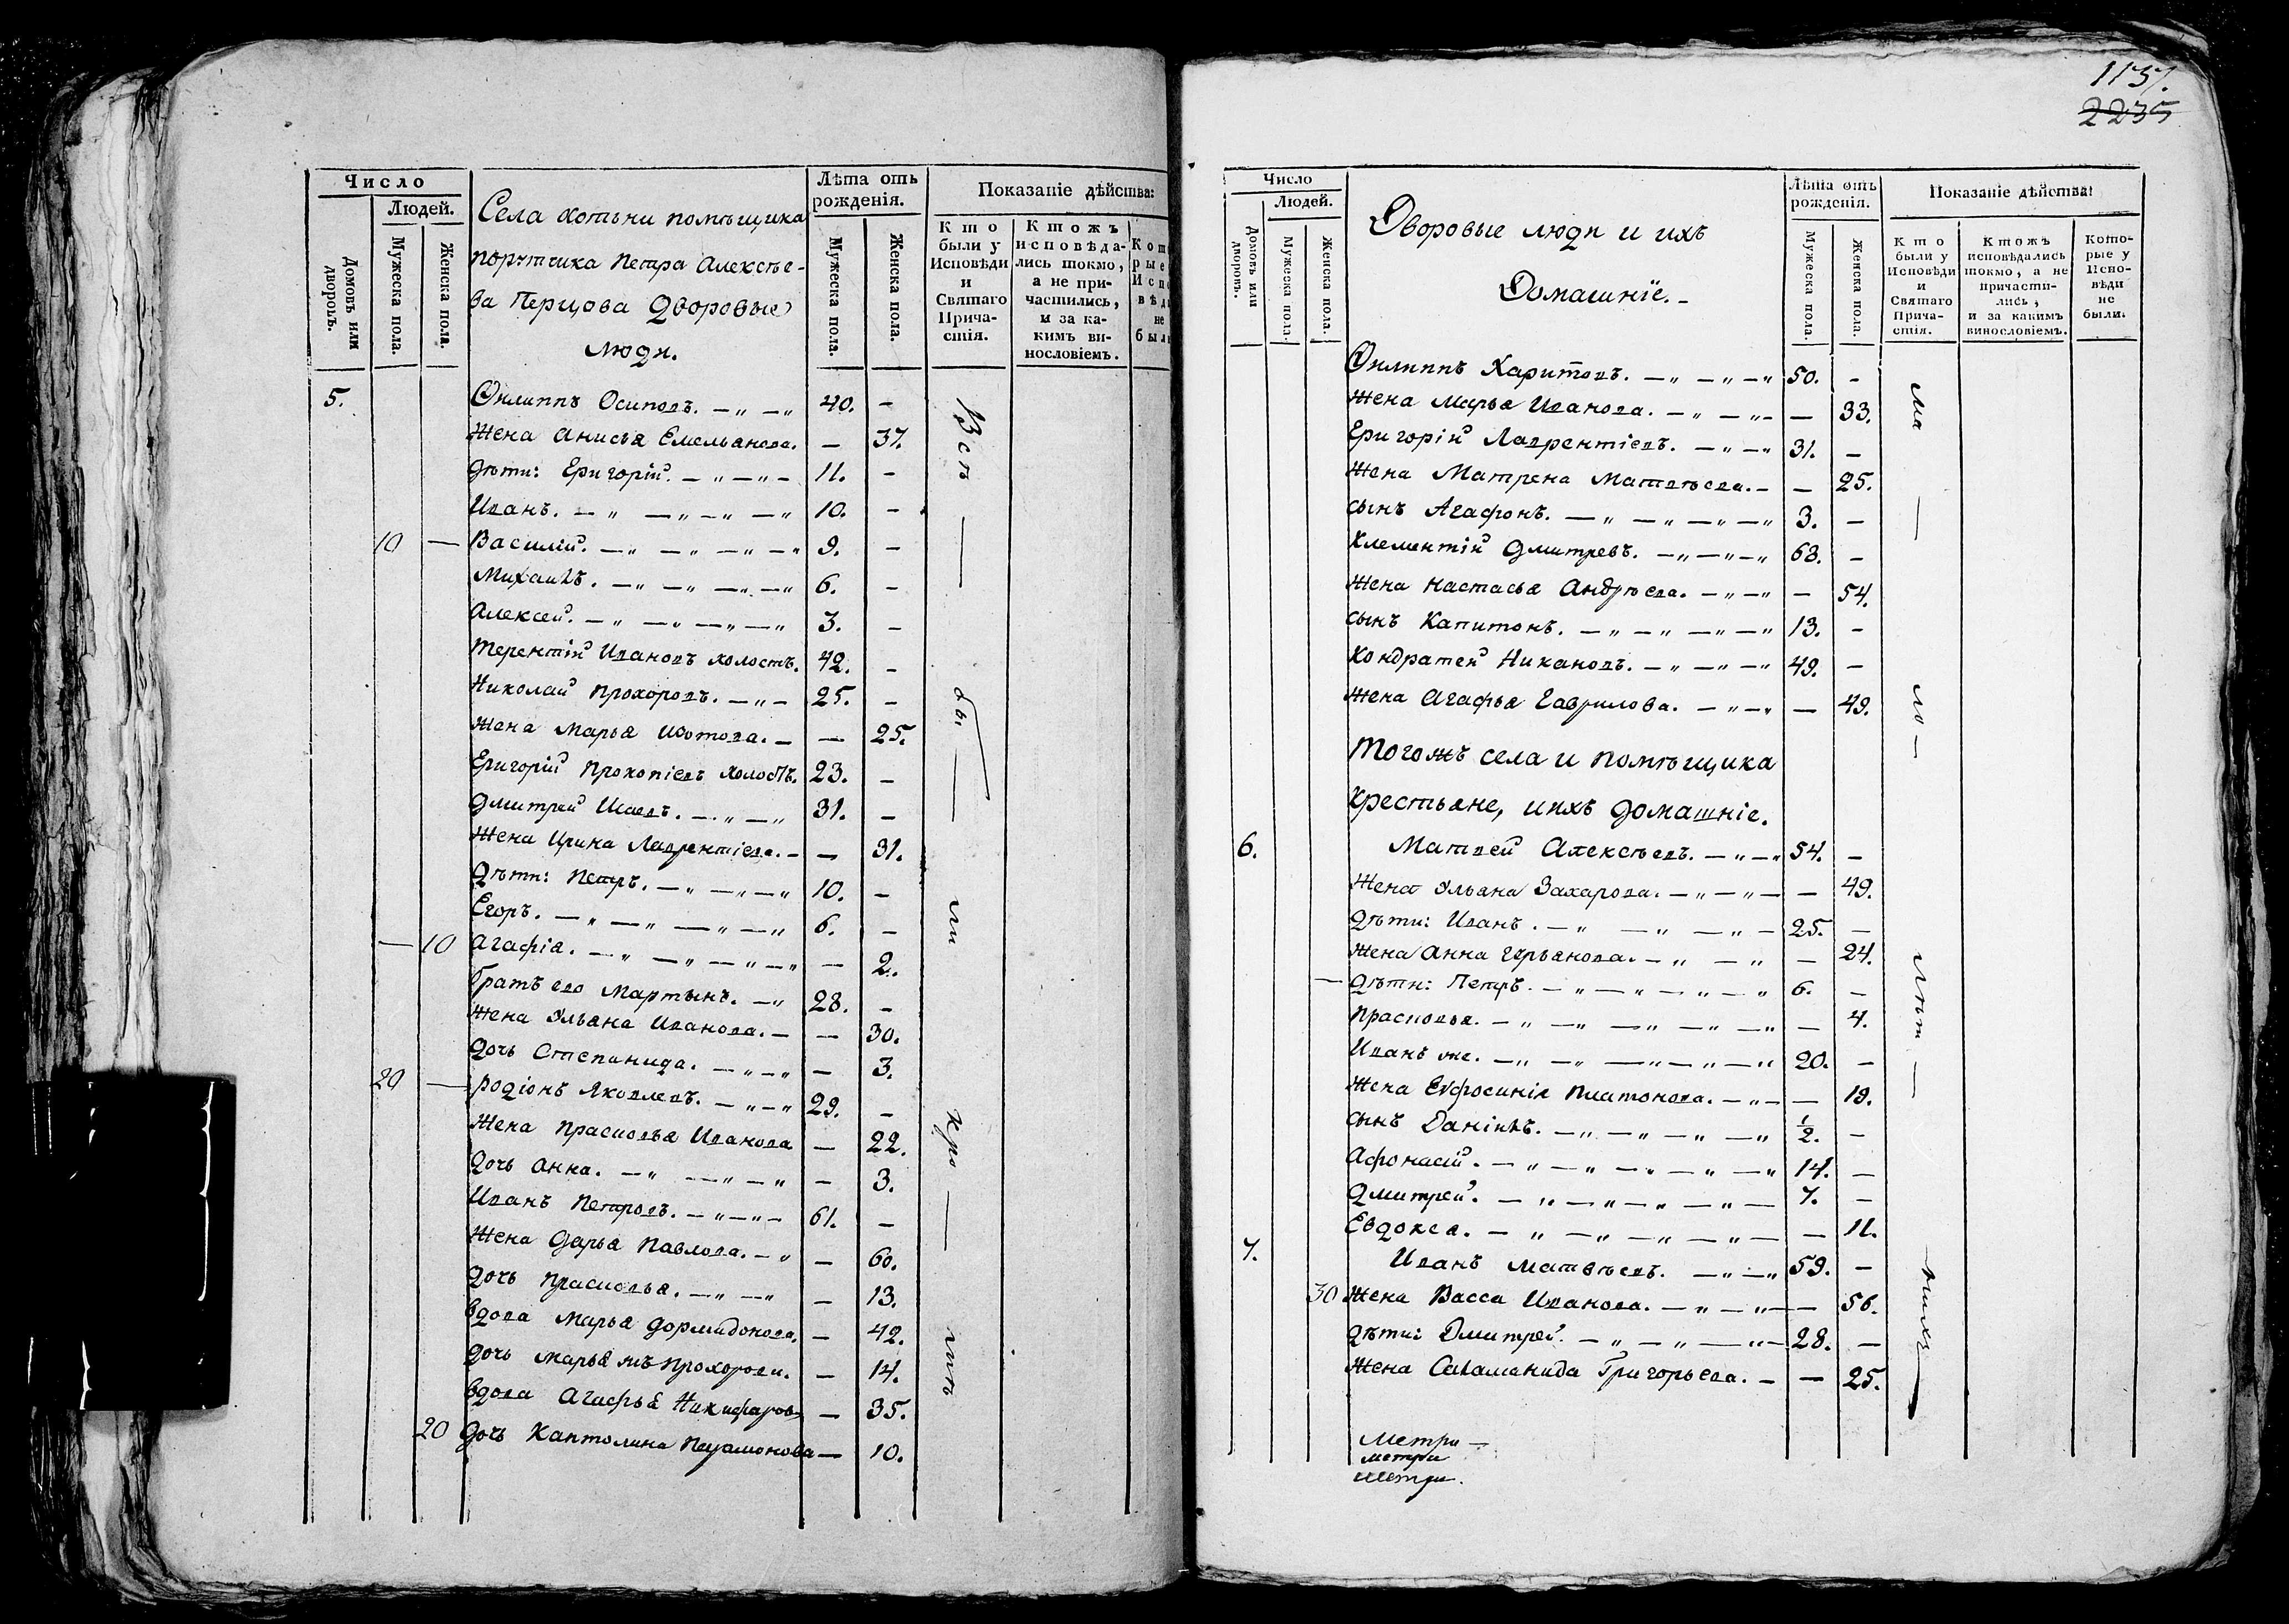 Число
Людей.
Домовъ или дворовъ.
Мужеска пола.
Женска пола.
Села Хотыни помѣщика
порутчика Петра Алексѣе-
ва Перцова Дворовые
люди.
Лѣта отъ
рожденія.
Мужеска пола.
Женска пола.
Показаніе дѣйства:
Кто
были у
Исповѣди
и
Святаго
Прича-
стія.
Ктожъ
исповѣда-
лись токмо,
а не при-
частились,
и за ка-
кимъ ви-
нословіемъ.
5. Филиппъ Осиповъ. — „ — „ 40. —
Жена Анисья Емельянова. — 37.
Дѣти: Григорій. — „ — „ — 11. —
Иванъ. — „ — „ — „ — „ 10. —
10 — Василій. — „ — „ — „ — „ 9. —
Михаилъ. — „ — „ — „ — „ 6. —
Алексей. — „ — „ — „ — „ 3. —
Терентій Ивановъ холостъ. 42. —
Николай Прохоровъ. — „ — 25. —
Жена Марья — — 25.
Григорій Прокопіевъ холостъ. 23. —
Дмитрей — „ — „ 31. —
Жена Ирина Лаврентіева. — — 31.
Дѣти: Петръ. — „ — „ — „ 10. —
Егоръ. — „ — „ — „ — „ 6. —
— 10 Агафіа. — „ — „ — „ — „ — 2.
Братъ его Мартынъ. — „ 28. —
Жена Ульяна Иванова. — — 30.
Дочь Степанида. — „ — „ — 3.
20 — Родіонъ Яковлевъ. — „ — „ 29. —
Жена Прасковья Иванова — 22.
Дочь Анна. — „ — „ — „ — 3.
Иванъ Петровъ. — „ — „ — 61. —
Жена Дарья Павлова. — „ — 60.
Дочь Прасковья. — „ — „ — 13.
Вдова Марья Дормидонова. — 42.
Дочь Марья жъ Прохорова. — 14.
Вдова Агафья Никифоров — 35.
20 Дочь Каптолина — 10.
Всѣ — бы — ли Кро — мѣ
1137.
2235
Число
Людей.
Домовъ или дворовъ.
Мужеска пола.
Женска пола.
Дворовые люди и ихъ
Домашніе. —
Лѣта отъ
рожденія.
Мужеска пола.
Женска пола.
Показаніе дѣйства:
Кто
были у
Исповѣди
и
Святаго
Прича-
стія.
Ктожъ
исповѣдались
токмо, а не
причасти-
лись,
и за какимъ
винословіемъ.
Кото-
рые у
Испо-
вѣди
не
были.
Филиппъ Харитовъ. — „ — „ — „ 50. —
Жена Марья Иванова. — „ — „ — — 33.
Григорій Лаврентіевъ. — „ — „ 31. —
Жена Матрена Матвѣева. — — 25.
сынъ Агафонъ. — „ — „ — „ — „ 3. —
Климентій Дмитревъ. — „ — „ — „ 68. —
Жена Настасья Андрѣева. — „ — „ — 54.
сынъ Капитонъ. — „ — „ — „ — „ 13. —
Кондратей Никановъ. — „ — „ — „ 49. —
Жена Агафья Гаврилова. — „ — „ — 49.
Тогожъ села и помѣщика
Крестьяне, и ихъ домашніе.
6. Матвей Алексѣевъ. — „ — „ 54. —
Жена Ульяна Захарова. — „ — „ — — 49.
Дѣти: Иванъ. — „ — „ — „ — 25. —
Жена Анна — „ — „ — 24.
— Дѣти: Петръ. — „ — „ — „ — „ 6. —
Прасковья. — „ — „ — „ — „ — „ — 4.
Иванъ же. — „ — „ — „ — „ — „ 20. —
Жена Евфросинія Платонова. — „ — — 19.
сынъ Даніилъ. — „ — „ — „ — „ ½. —
Афонасій. — „ — „ — „ — „ — „ 14. —
Дмитрей. — „ — „ — „ — „ — 7. —
Евдокеа. — „ — „ — „ — „ — — 11.
7. Иванъ Матвѣевъ. — „ — „ 59. —
30 Жена Васса Иванова. — „ — „ — — 56.
Дѣти: Дмитрей. — „ — „ — „ — 28. —
Жена Саламанида Григорьева. — — 25.
ма — ло — лѣт — нихъ —
Метри —
метри
Метри.